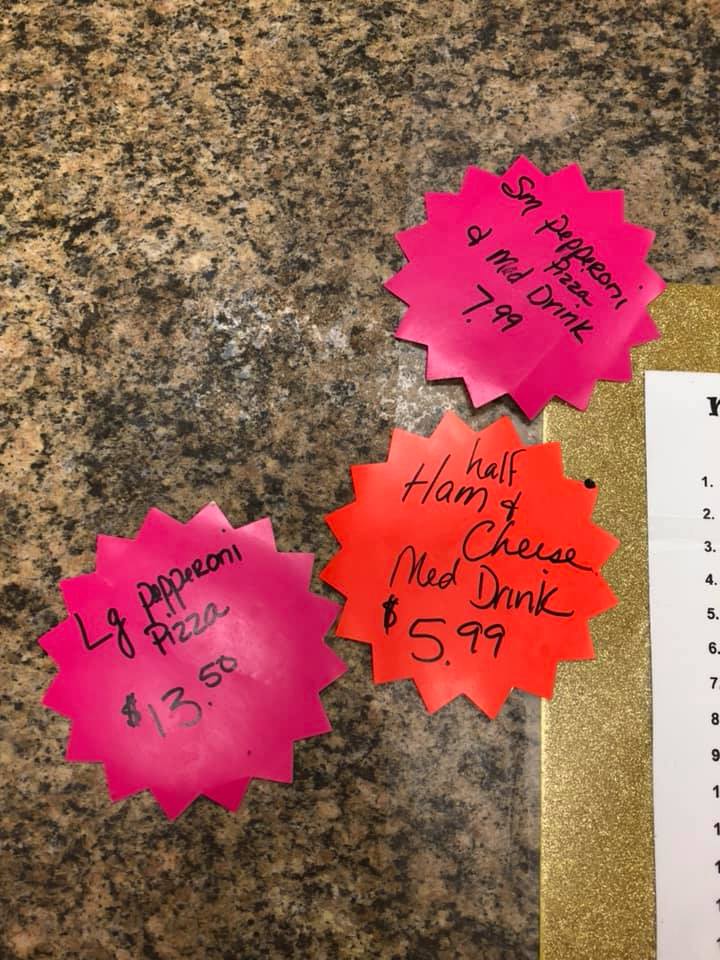 Sm pepperoni
Pizza
& Med Drink
7.99
half
Ham &
Cheese
Med Drink
$5.99
Lg pepperoni
Pizza
$13.50
1.
2.
3.
4.
5.
6.
7.
8
9